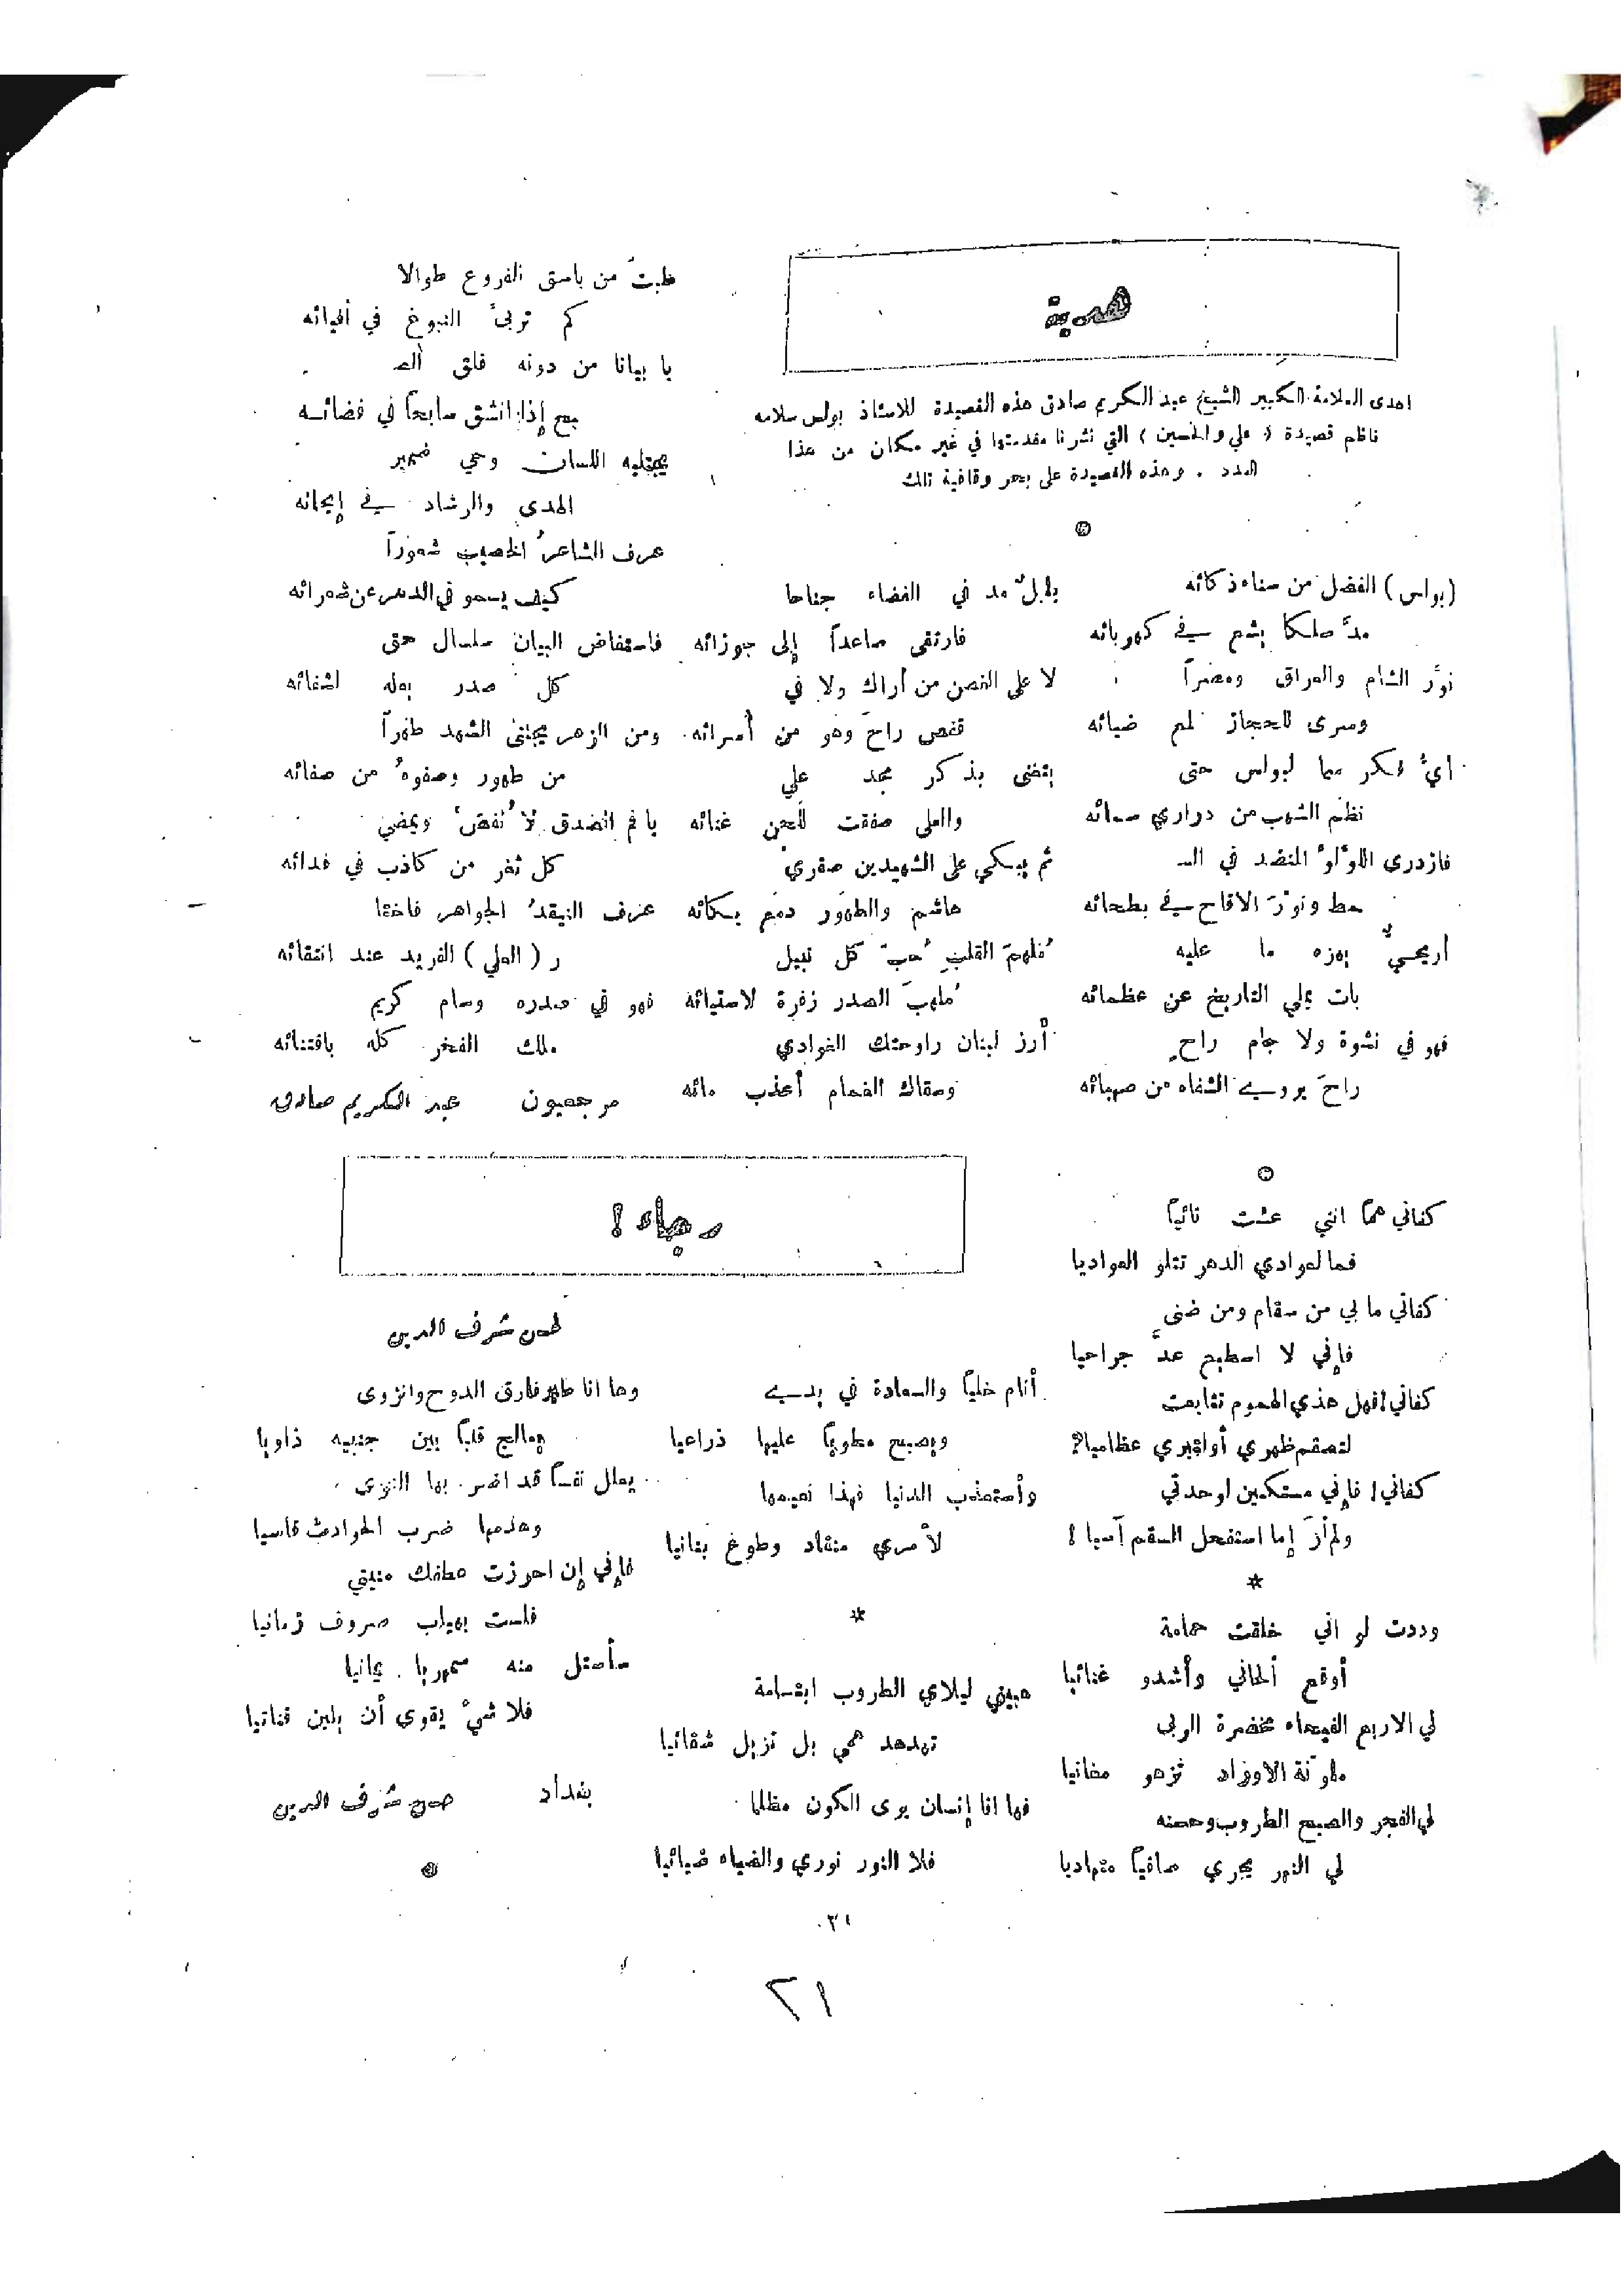 هدية
اهدى العلامة الكبير الشيخ عبد الكريم صادق هذه القصيدة للاستاذ بولس سلامه
ناظم قصيدة ( علي والحسين ) التي نشرنا مقدمتها في غير مكان من هذا
العدد . وهذه القصيدة على بحر وقافية تلك
(بولس) الفضل من سناء ذكائه
مدَّ سلكا يشع في كهربائه
نوَّر الشام والعراق ومصراً
وسرى للحجاز لمع ضيائه
ايُّ فكر سما لبولس حتى
نظم الشهب من دراري سمائه
فازدرى اللؤلؤ المنضد في الـ
سمط ونوْرَ الاقاح في بطحائه
أريحيٌّ يهزه ما عليه
بات يملي التاريخ عن عظمائه
فهو في نشوة ولا جام راحٍ
راحَ يروي الشفاه من صهبائه
بلبلٌ مد في الفضاء جناحا
فارتقى صاعداً إلى جوزائه
لا على الغصن من أراك ولا في
قفص راحَ وهو من أسرائه
يتغنى بذكر مجد علي
والعلى صفقت للحن غنائه
ثم يبكي على الشهيدين صقري
هاشم والطهور دمع بكائه
مُلهمَ القلبِ حبَّ كل نبيل
مُلهبَ الصدر زفرة لاستيائه
أرز لبنان راوحتك الغوادي
وسقاك الغمام أعذب مائه
طبتَ من باسق الفروع طوالا
كم تربىَّ النبوغ في أفيائه
يا بيانا من دونه فلق الصـ
ـبح إذا انشق سابحاً في فضائه
يجتليه اللسان وحي ضمير
الهدى والرشاد في إيحائه
عرف الشاعرُ الخصيب شعوراً
كيف يسمو في الدهر عن شعرائه
فاستفاض البيان سلسال حتى
كل صدر بوله لشفائه
ومن الزهر يجتنى الشهد طهراً
من طهور وصفوهُ من صفائه
يا فم الصدق لا تُفضَّ ويمضي
كل ثغر من كاذب في فدائه
عرف النيقدُ الجواهر فاختا
ر ( العلي ) الفريد عند انتقائه
فهو في صدره وسام كريم
ملك الفخر كله باقتنائه
مرجعيون عبد الكريم صادق
رجاء !
لحسن شرف الدين
كفاني هماً انني عشت نائياً
فما لعوادي الدهر تتلو العواديا
كفاني ما بي من سقام ومن ضنى
فإني لا اسطيع عدَّ جراحيا
كفاني ! فهل هذي الهموم تتابعت
لتصقم ظهري أو لتبري عظاميا؟
كفاني ! فإني مستكين لوحدتي
ولم أرَ إما استفحل السقم آسيا !
*
وددت لو اني خلقت حمامة
أوقع ألحاني وأشدو غنائيا
لي الاربع الفيحاء مخضرة الربى
ملونة الاوراد تزهو مغانيا
لي الفجر والصبح الطروب وحسنه
لي النهر يجري صافياً متهاديا
أنام خلياً والسعادة في يدي
ويصبح مطوياً عليها ذراعيا
وأستعذب الدنيا فهذا نعيمها
لأمري منقاد وطوع بنانيا
*
هبيني ليلاي الطروب ابتسامة
تهدهد همي بل تزيل شقائيا
فها انا إنسان يرى الكون مظلما
فلا النور نوري والضياء ضيائيا
وها انا طير فارق الدوح وانزوى
يعالج قلباً بين جنبيه ذاويا
يعلل نفساً قد اضر بها النوى
وهدمها ضرب الحوادث قاسيا
فإني إن احرزت عطفك منيتي
فلست بهياب صروف زمانيا
سأصقل منه سمهريا يمانيا
فلا شيءَ يقوى أن يلين قناتيا
بغداد حسن شرف الدين
٢١
٢١